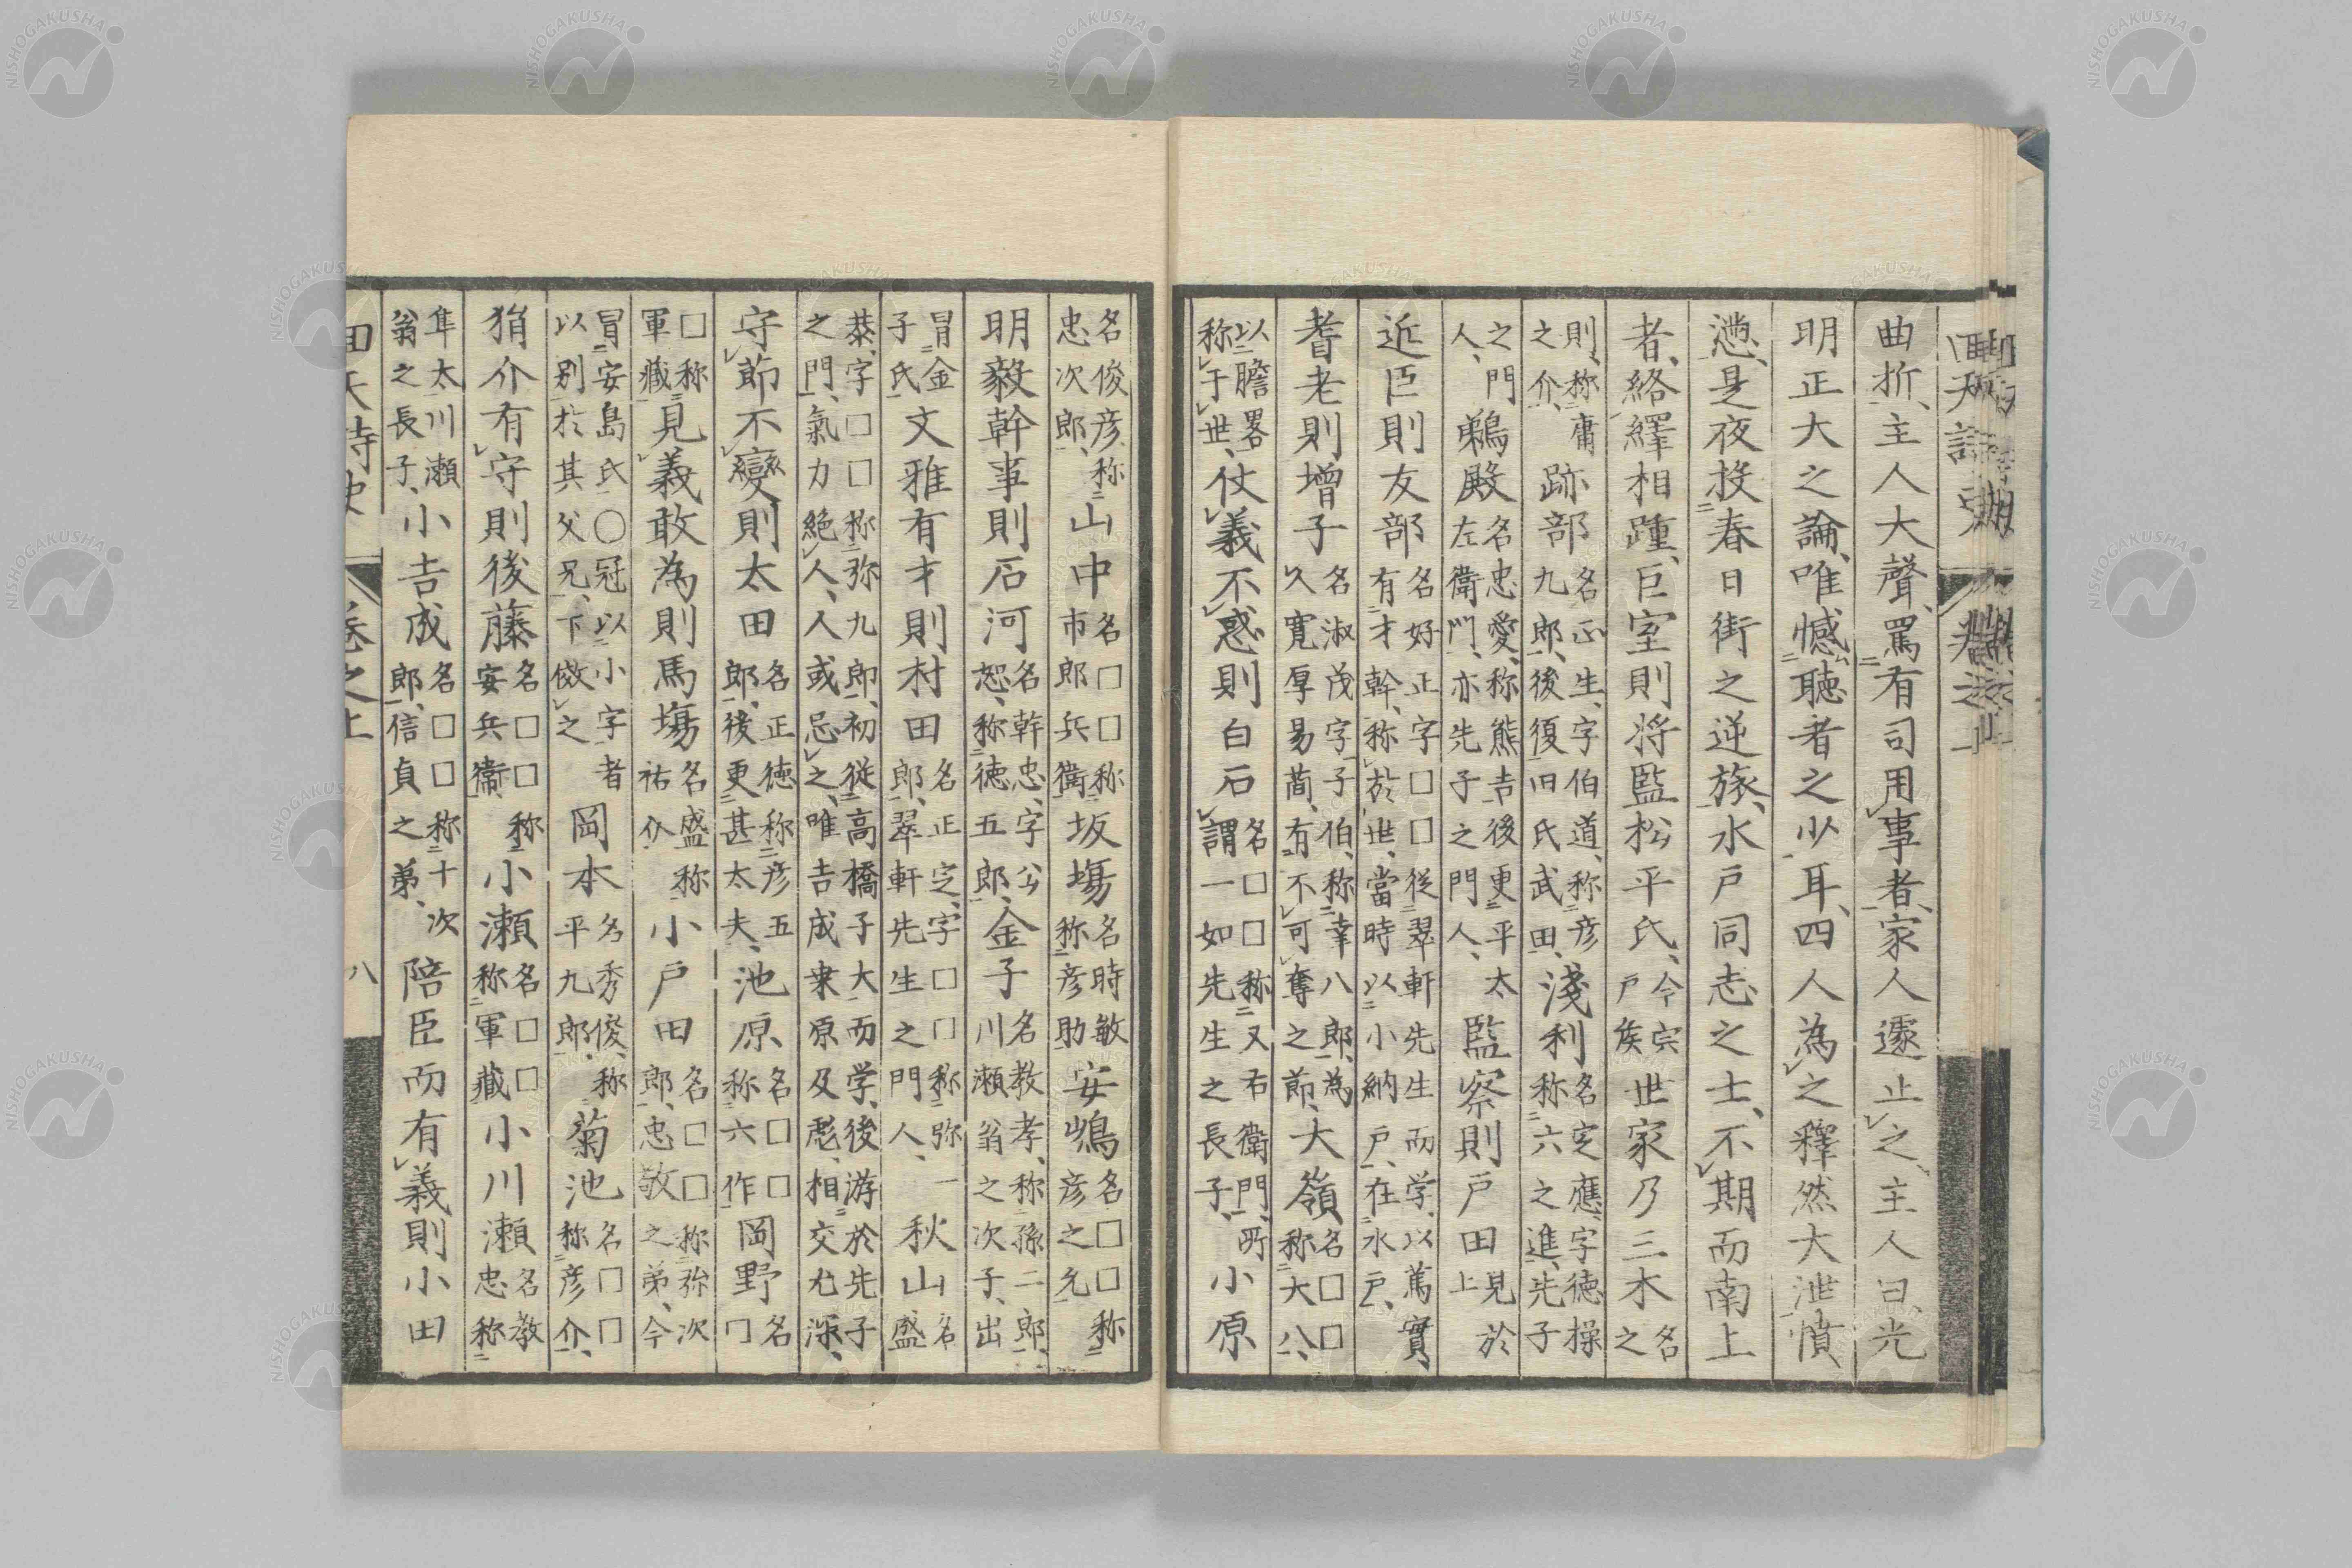 曲折、主人大聲、罵有司用事者、家人遽止之、主人曰、光
明正大之論、唯憾聴者之少耳、四人為之釋然大泄憤
懣、是夜投春日街之逆旅、水戸同志之士、不期而南上
者、絡繹相踵、巨室則将監松平氏、今宗戸矦世家乃三木名之
則、称庸之介、跡部名正生、字伯道、称彦九郎、後復旧氏武田、淺利名定應、字徳操称六之進、先子
之門人、鵜殿名忠愛、称熊吉後更平太左衛門、亦先子之門人、監察則戸田見於上
近臣則友部名好正字□□従翠軒先生而学、以篤實有才幹、称於世、當時以小納戸、在水戸、
耆老則増子名淑茂字子伯、称幸八郎、為久寛厚易蕳、有不可奪之節、大嶺名□□称大八、
以膽畧称于世、仗義不惑則白石名□□称又右衛門、所謂一如先生之長子、小原
名俊彦称忠次郎、山中名□□称市郎兵衛坂塲名時敏称彦助安嶋名□□称彦之允、
明毅幹事則石河名幹忠、字公恕、称徳五郎、金子名教孝、称孫二郎、川瀬翁之次子、出
冒金子氏文雅有才則村田名正定、字□□称弥一郎、翠軒先生之門人、秋山名盛
恭、字□□称弥九郎、初従高橋子大而学、後游於先子之門、氣力絶人、人或忌之、唯吉成来原及彪、相交尤深、
守節不變則太田名正徳称彦五郎、後更甚太夫、池原名□□称六作岡野名□
□称軍藏見義敢為則馬塲名盛称祐介小戸田名□□称弥次郎、忠敬之弟、今
冒安島氏〇冠以小字者以別於其父兄、下傚之岡本名秀俊、称平九郎、菊池名□□称彦介、
狷介有守則後藤名□□称安兵衞、小瀬名□□称軍藏小川瀬名教忠称
隼太川瀬翁之長子、小吉成名□□称十次郎、信貞之弟、陪臣而有義則小田
卷之上
八